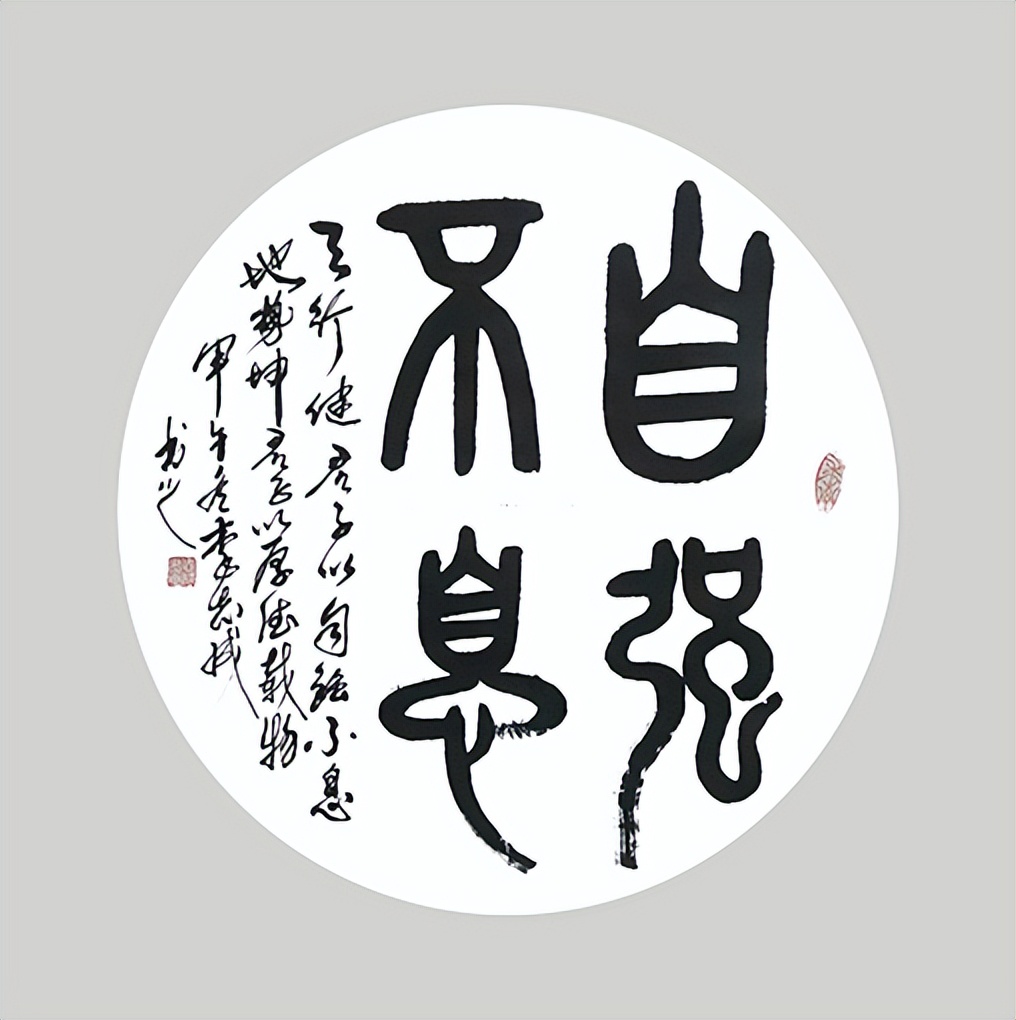 自强
不息
天行健君子以自强不息
地势坤君子以厚德载物
甲午冬李志
书